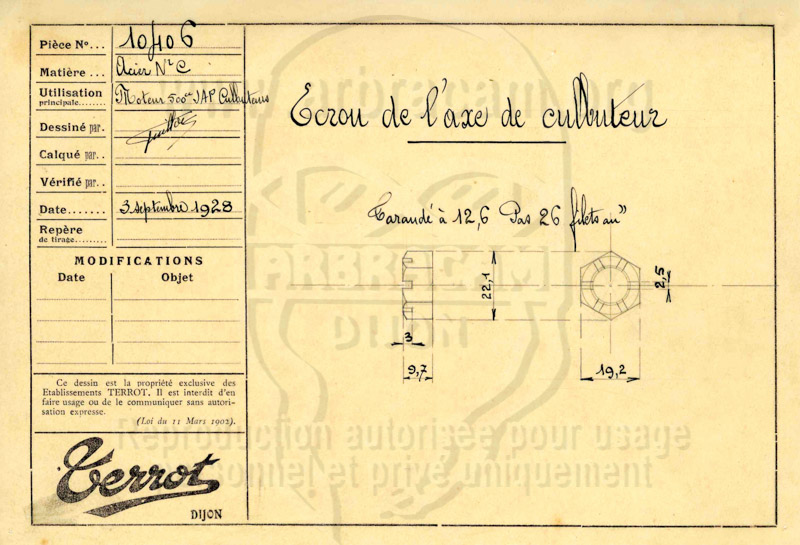 Pièce Nº... 10406
Matière ... Acier Nº C
Utilisation principale........ Moteur 500cc JAP Culbuteurs
Dessiné par.
Calqué par..
Vérifié par..
Date....... 3 septembre 1928
Repère de tirage.........
MODIFICATIONS
Date Objet
Ce dessin est la propriété exclusive des
Etablissements TERROT. Il est interdit d'en
faire usage ou de le communiquer sans autori-
sation expresse.
(Loi du 11 Mars 1902).
Terrot
DIJON
Ecrou de l'axe de culbuteur
Taraudé à 12,6 Pas 26 filets au "
22,1
2,5
3
9,7
19,2
www.arbracam.org
ARBRACAM
DIJON
Reproduction autorisée pour usage
personnel et privé uniquement